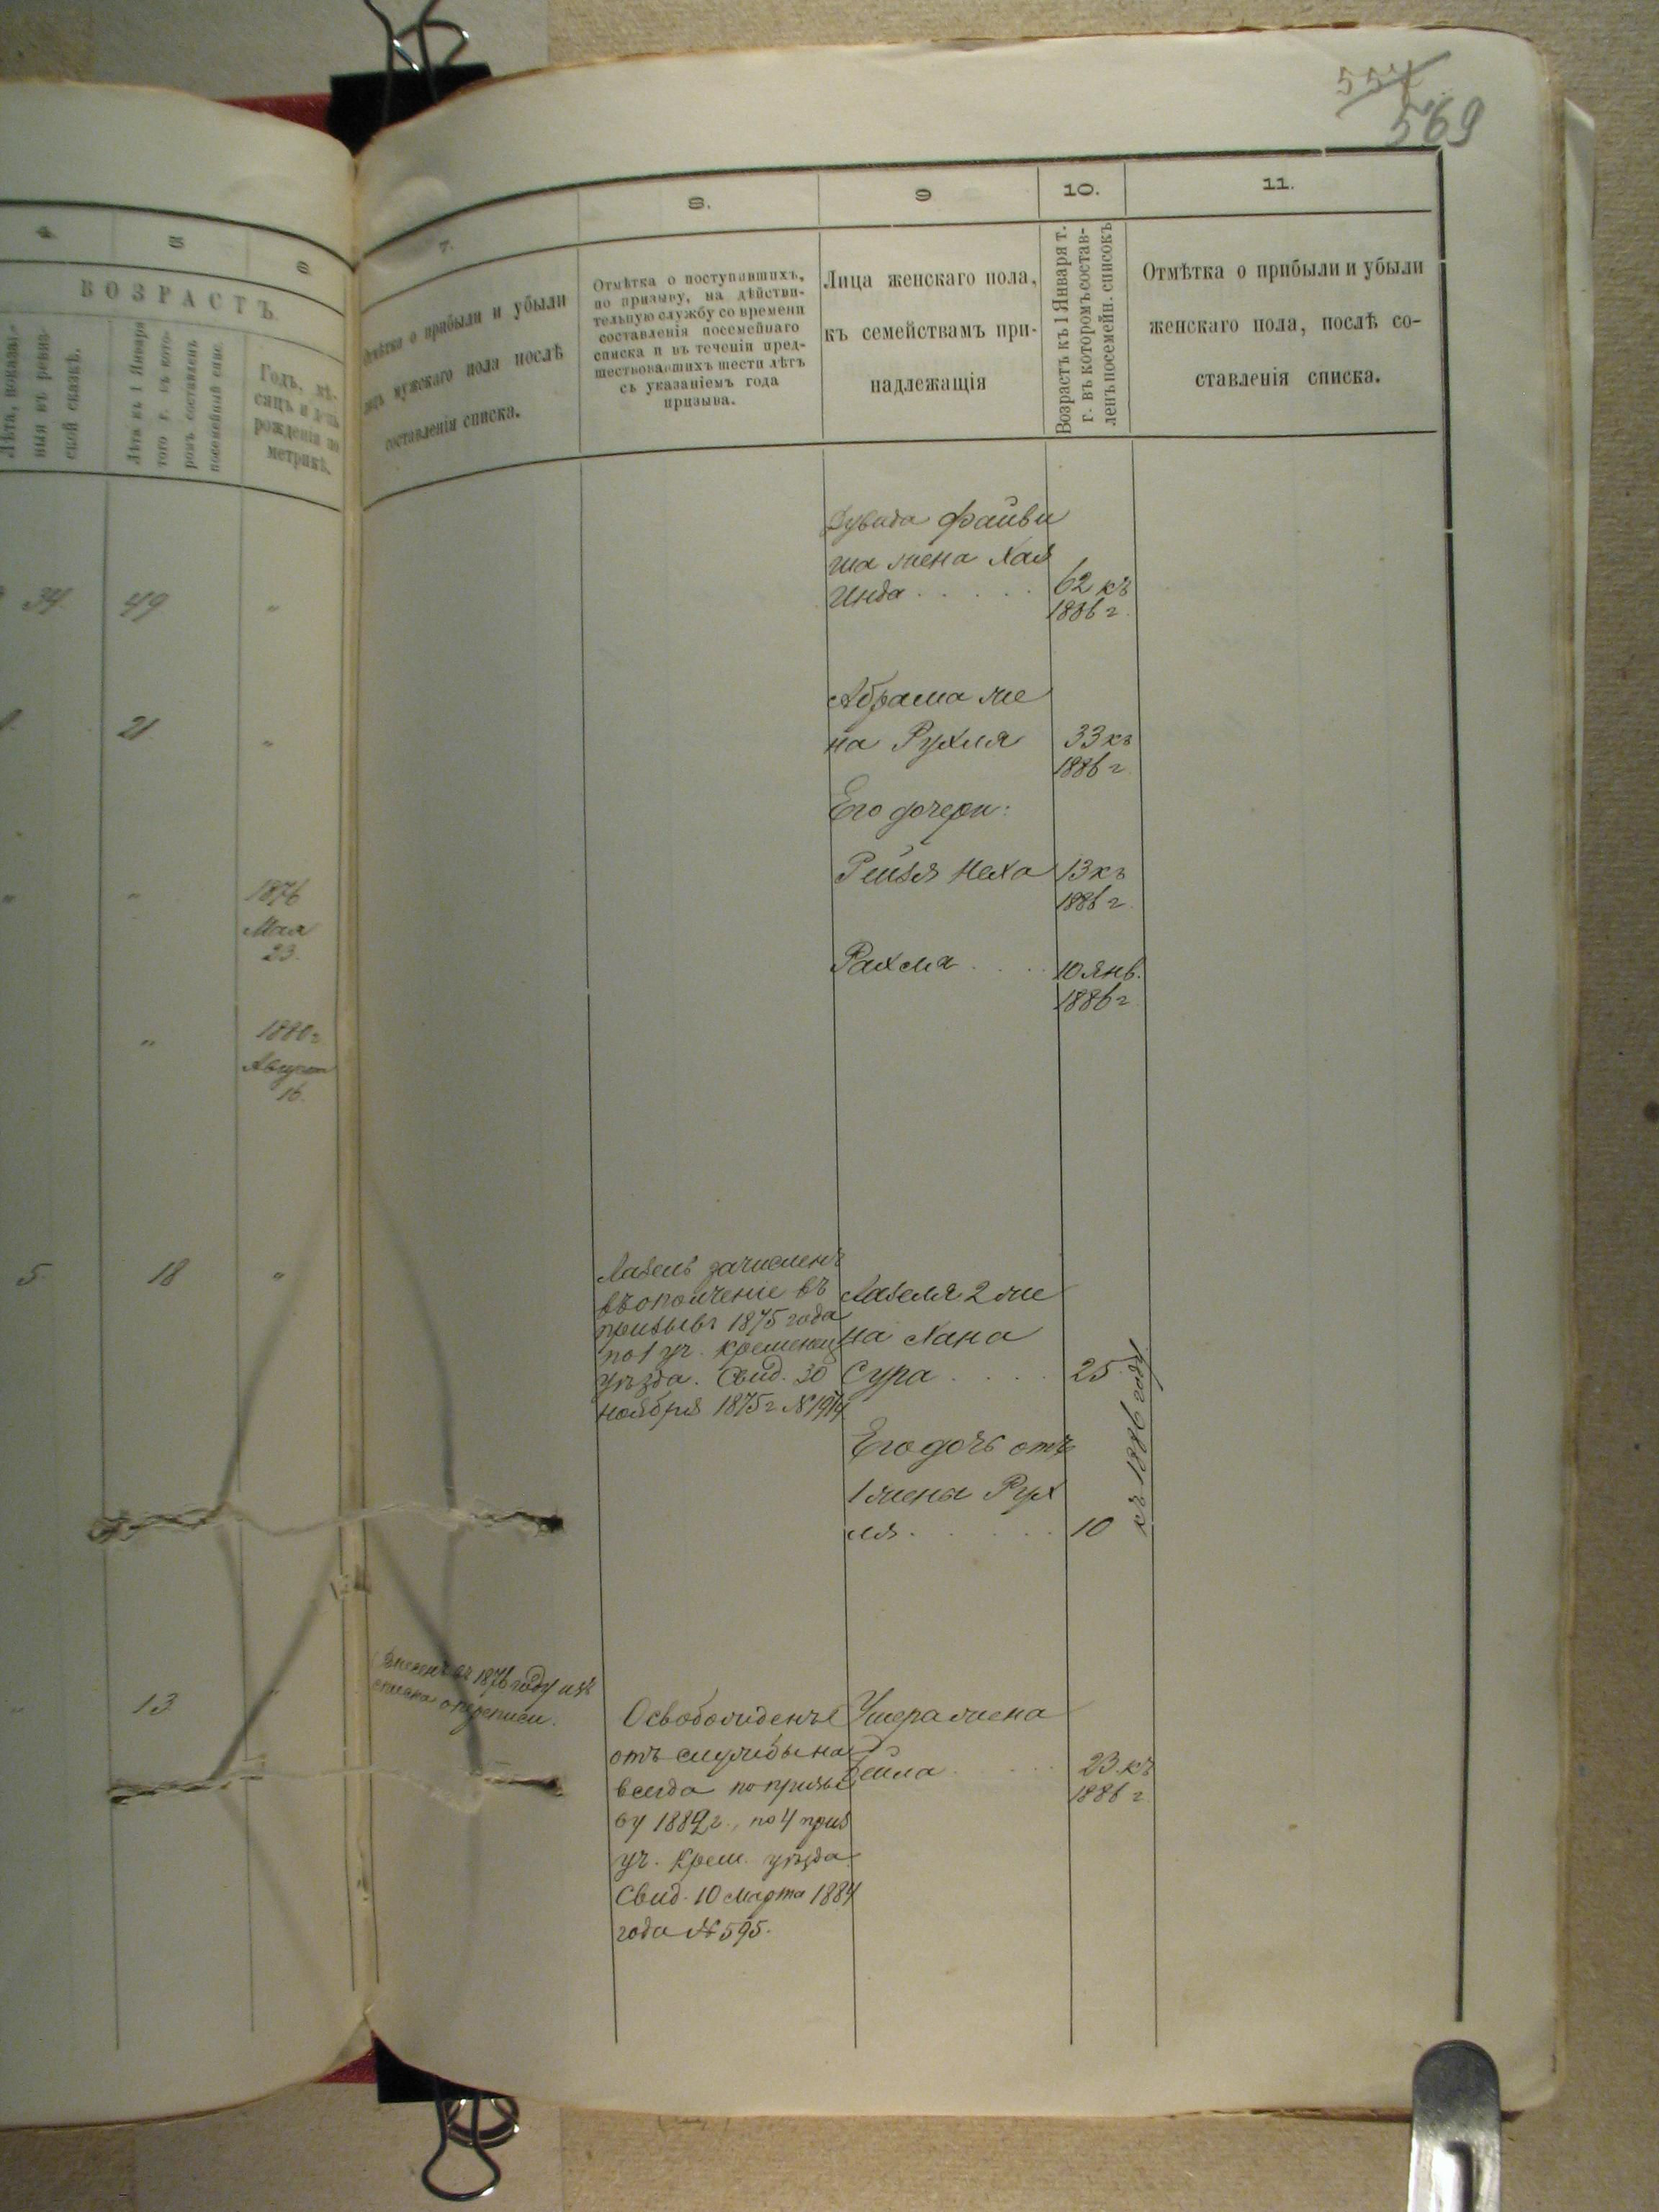 554
569
4.
5
6
ВОЗРАСТЪ.
Лѣта, показан-
ныя въ ревиз-
ской сказкѣ.
Лѣта къ 1 Января
того г. въ кото-
ромъ составленъ
посемейный спис.
Годъ, мѣ-
сяцъ и день
рожденія по
метрикѣ.
34
49
"
21
"
"
"
1876
Мая
23.
"
1880 г
Август
16.
5
18
"
13
"
7.
Отмѣтка о прибыли и убыли
лицъ мужскаго пола послѣ
составленія списка.
8.
Отмѣтка о поступившихъ,
по призыву, на дѣйстви-
тельную службу со времени
составленія посемейнаго
списка и въ теченіи пред-
шествовавшихъ шести лѣтъ
съ указаніемъ года
призыва.
9
Лица женскаго пола,
къ семействамъ при-
надлежащія
10.
Возрастъ къ 1 Января т.
г. въ которомъ состав-
ленъ посемейн. списокъ
11.
Отмѣтка о прибыли и убыли
женскаго пола, послѣ со-
ставленія списка.
Дувида Файви
ша жена Хая
Инда . . . . . 62 къ
1886 г.
Абрама же
на Рухля 33 къ
1886 г.
Его дочери:
Рейзя Неха 13 къ
1886 г.
Рахля . . . 10 Янв.
1886 г.
Лазель зачисленъ
въ ополченіе въ
призывъ 1875 года
по 1 уч. Кременец
уѣзда. Свид. 30
ноября 1875 г №
Лазеля 2 же
на Хана
Сура . . . . 25
Его дочь отъ
1 жены Рух
ля . . . . . 10
къ 1886 году
въ 1876 году изъ
о переписи.
13
Освобожденъ
отъ службы на
всегда по призы
ву 1882 г., по 4 приз
уч. Крем. уѣзда
Свид. 10 Марта 1884
года № 595.
Ушера жена
Бейла . . . . 23 къ
1886 г.